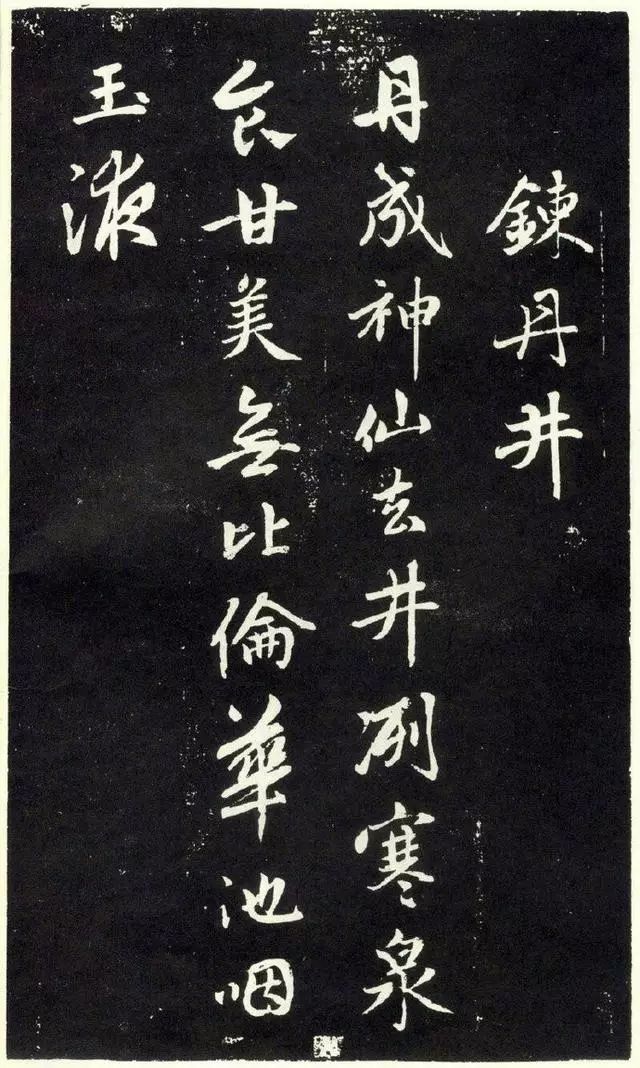 鍊丹井
丹成神仙去井冽寒泉
食甘美無比倫華池咽
玉液